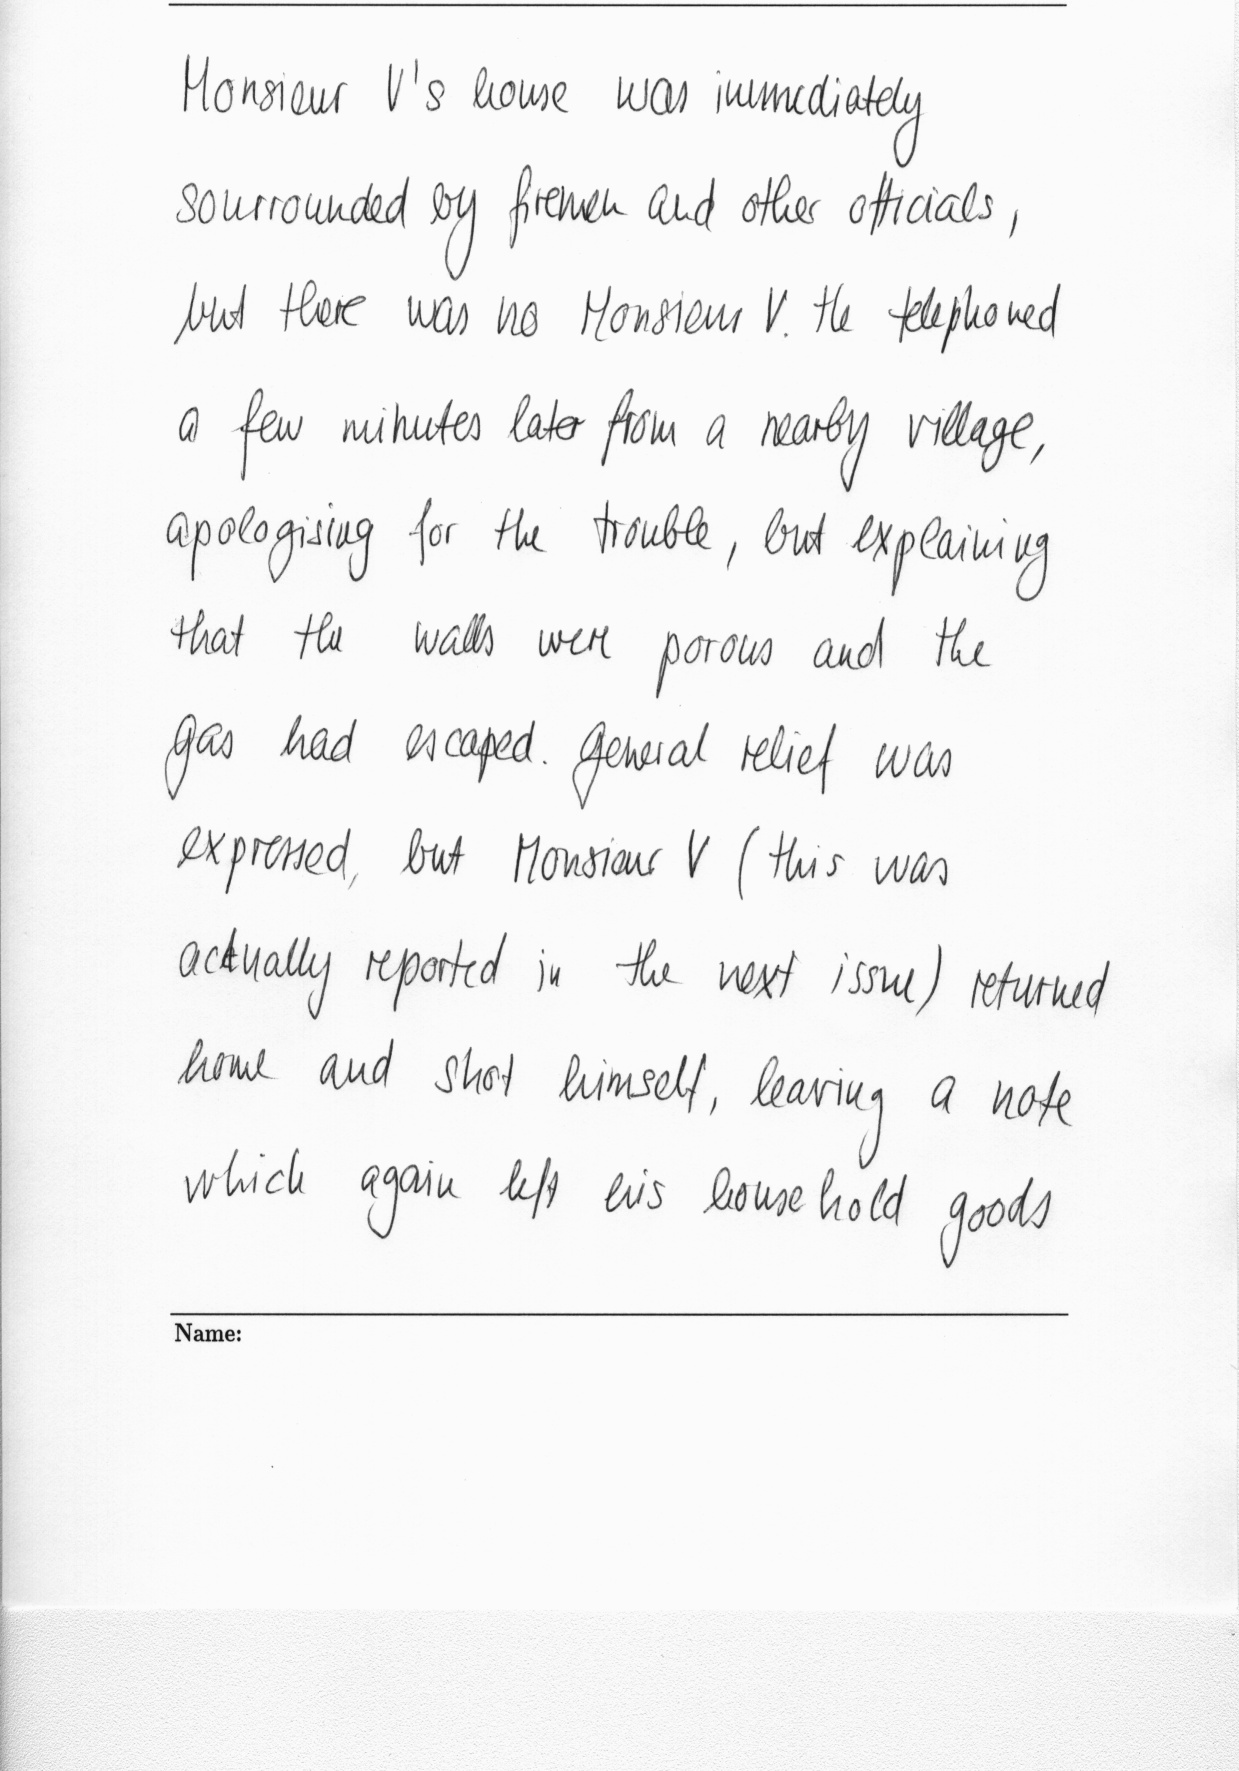 Monsieur V's house was immediately
sourrounded by firemen and other officials,
but there was no Monsieur V. He telephoned
a few minutes later from a nearby village,
apologising for the trouble, but explaining
that the walls were porous and the
gas had escaped. General relief was
expressed, but Monsieur V (this was
actually reported in the next issue) returned
home and shot himself, leaving a note
which again left his household goods
Name: